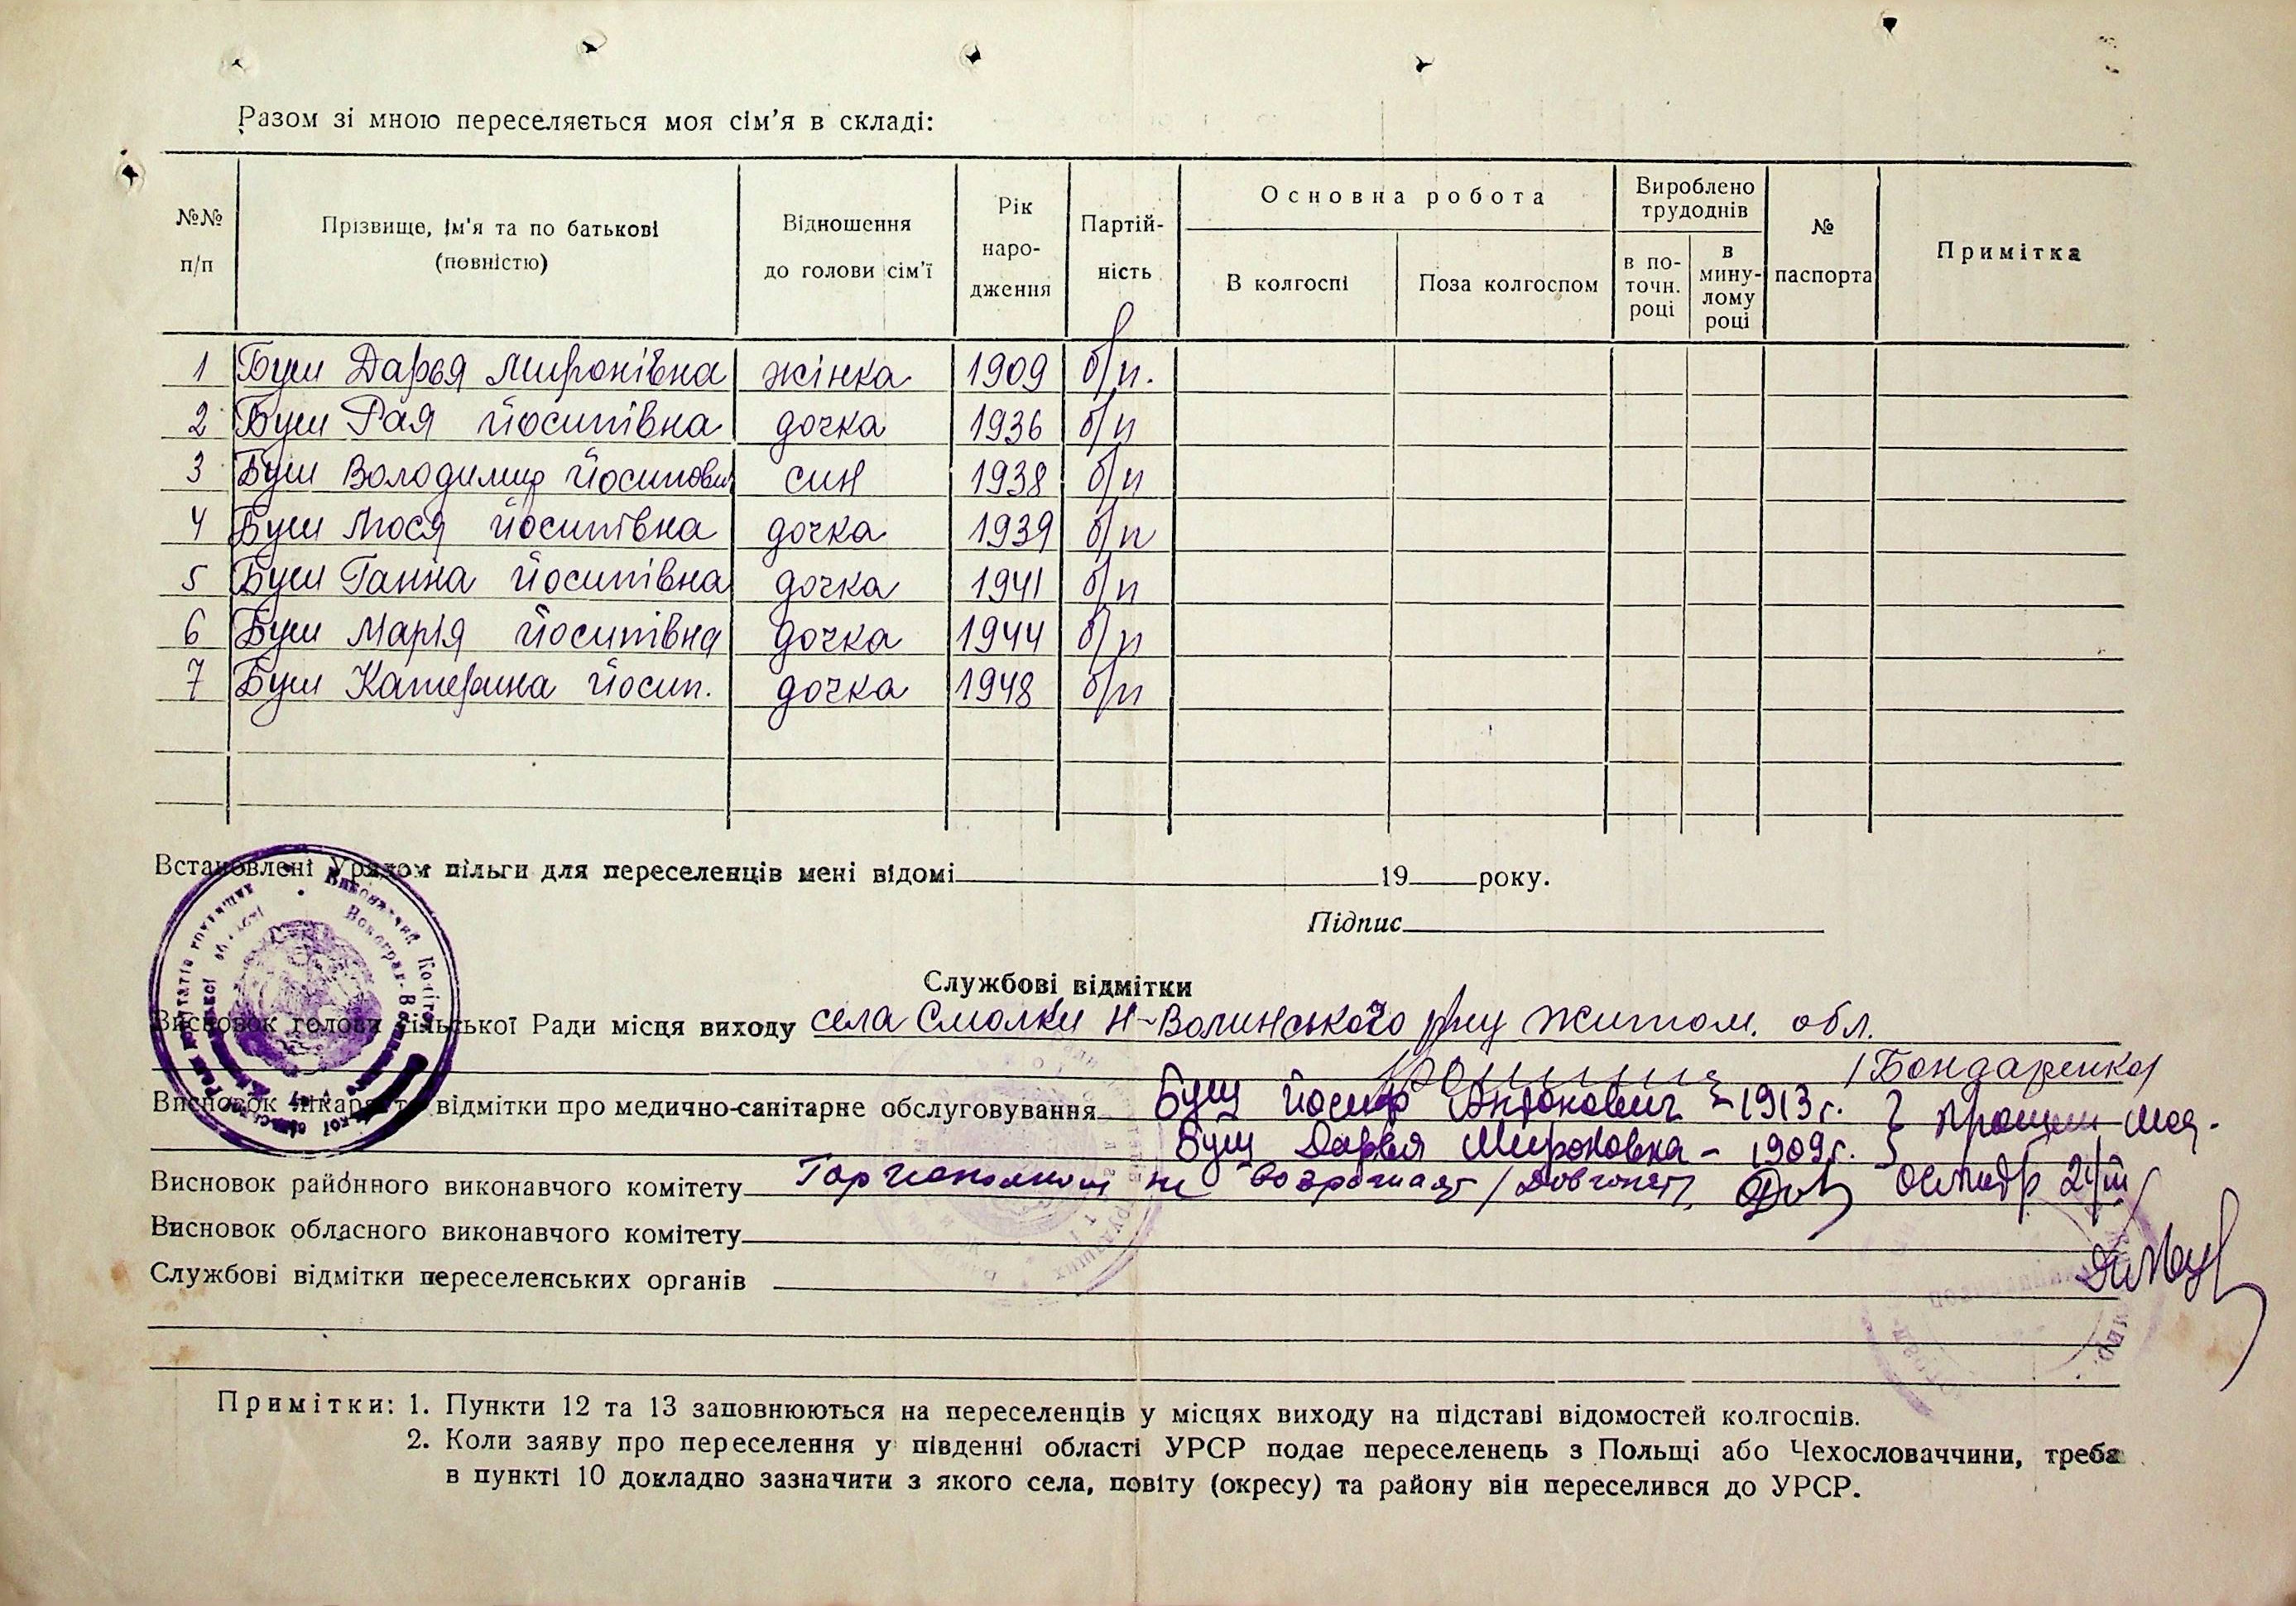 Разом зі мною переселяється моя сім'я в складі:
№№ п/п
Прізвище, ім'я та по батькові (повністю)
Відношення до голови сім'ї
Рік наро- дження
Партій- ність
Основна робота
В колгоспі
Поза колгоспом
Вироблено трудоднів
в по- точн. році
в мину- лому році
№ паспорта
Примітка
1 Буш Дарья Миронівна жінка 1909 б/п.
2 Буш Рая Йосипівна дочка 1936 б/п
3 Буш Володимир Йосипович син 1938 б/п
4 Буш Люся Йосипівна дочка 1939 б/п
5 Буш Ганна Йосипівна дочка 1941 б/п
6 Буш Марія Йосипівна дочка 1944 б/п
7 Буш Катерина Йосип. дочка 1948 б/п
Встановлені Урядом пільги для переселенців мені відомі 19 року.
Підпис
Службові відмітки
Висновок голови сільської Ради місця виходу села Смолки Н-Волинського р-ну Житом. обл.
/Бондаренко/
Висновок лікаря та відмітки про медично-санітарне обслуговування Буш Йосиф Антонович - 1913 г.
Буш Дарья Мироновна - 1909 г.
Висновок районного виконавчого комітету Горисполком не возражает
Висновок обласного виконавчого комітету
Службові відмітки переселенських органів
Примітки: 1. Пункти 12 та 13 заповнюються на переселенців у місцях виходу на підставі відомостей колгоспів.
2. Коли заяву про переселення у південні області УРСР подає переселенець з Польщі або Чехословаччини, треба
в пункті 10 докладно зазначити з якого села, повіту (окресу) та району він переселився до УРСР.